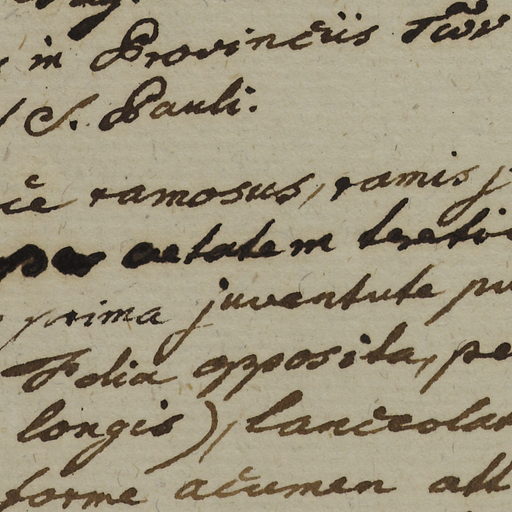 in Provinciis Tων
S. Pauli.
ramosus, ramis
per aetatem
prima juventute
Folia opposita, pe
longis), lanceolat
forme acumen